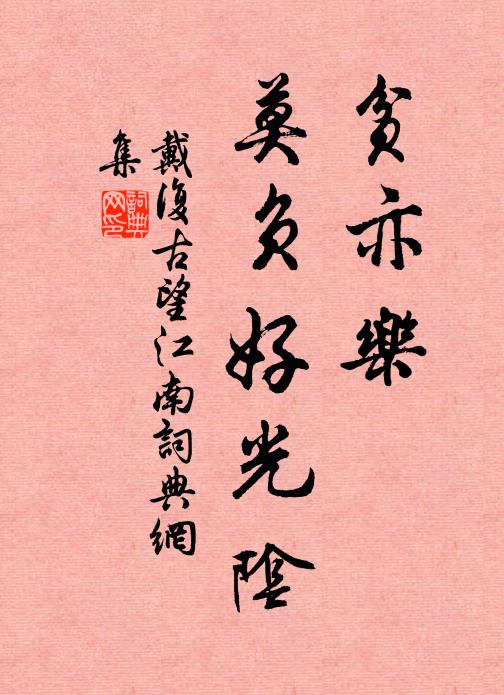 貧亦樂
莫負好光陰
戴復古望江南詞典網
集
詞典
网印